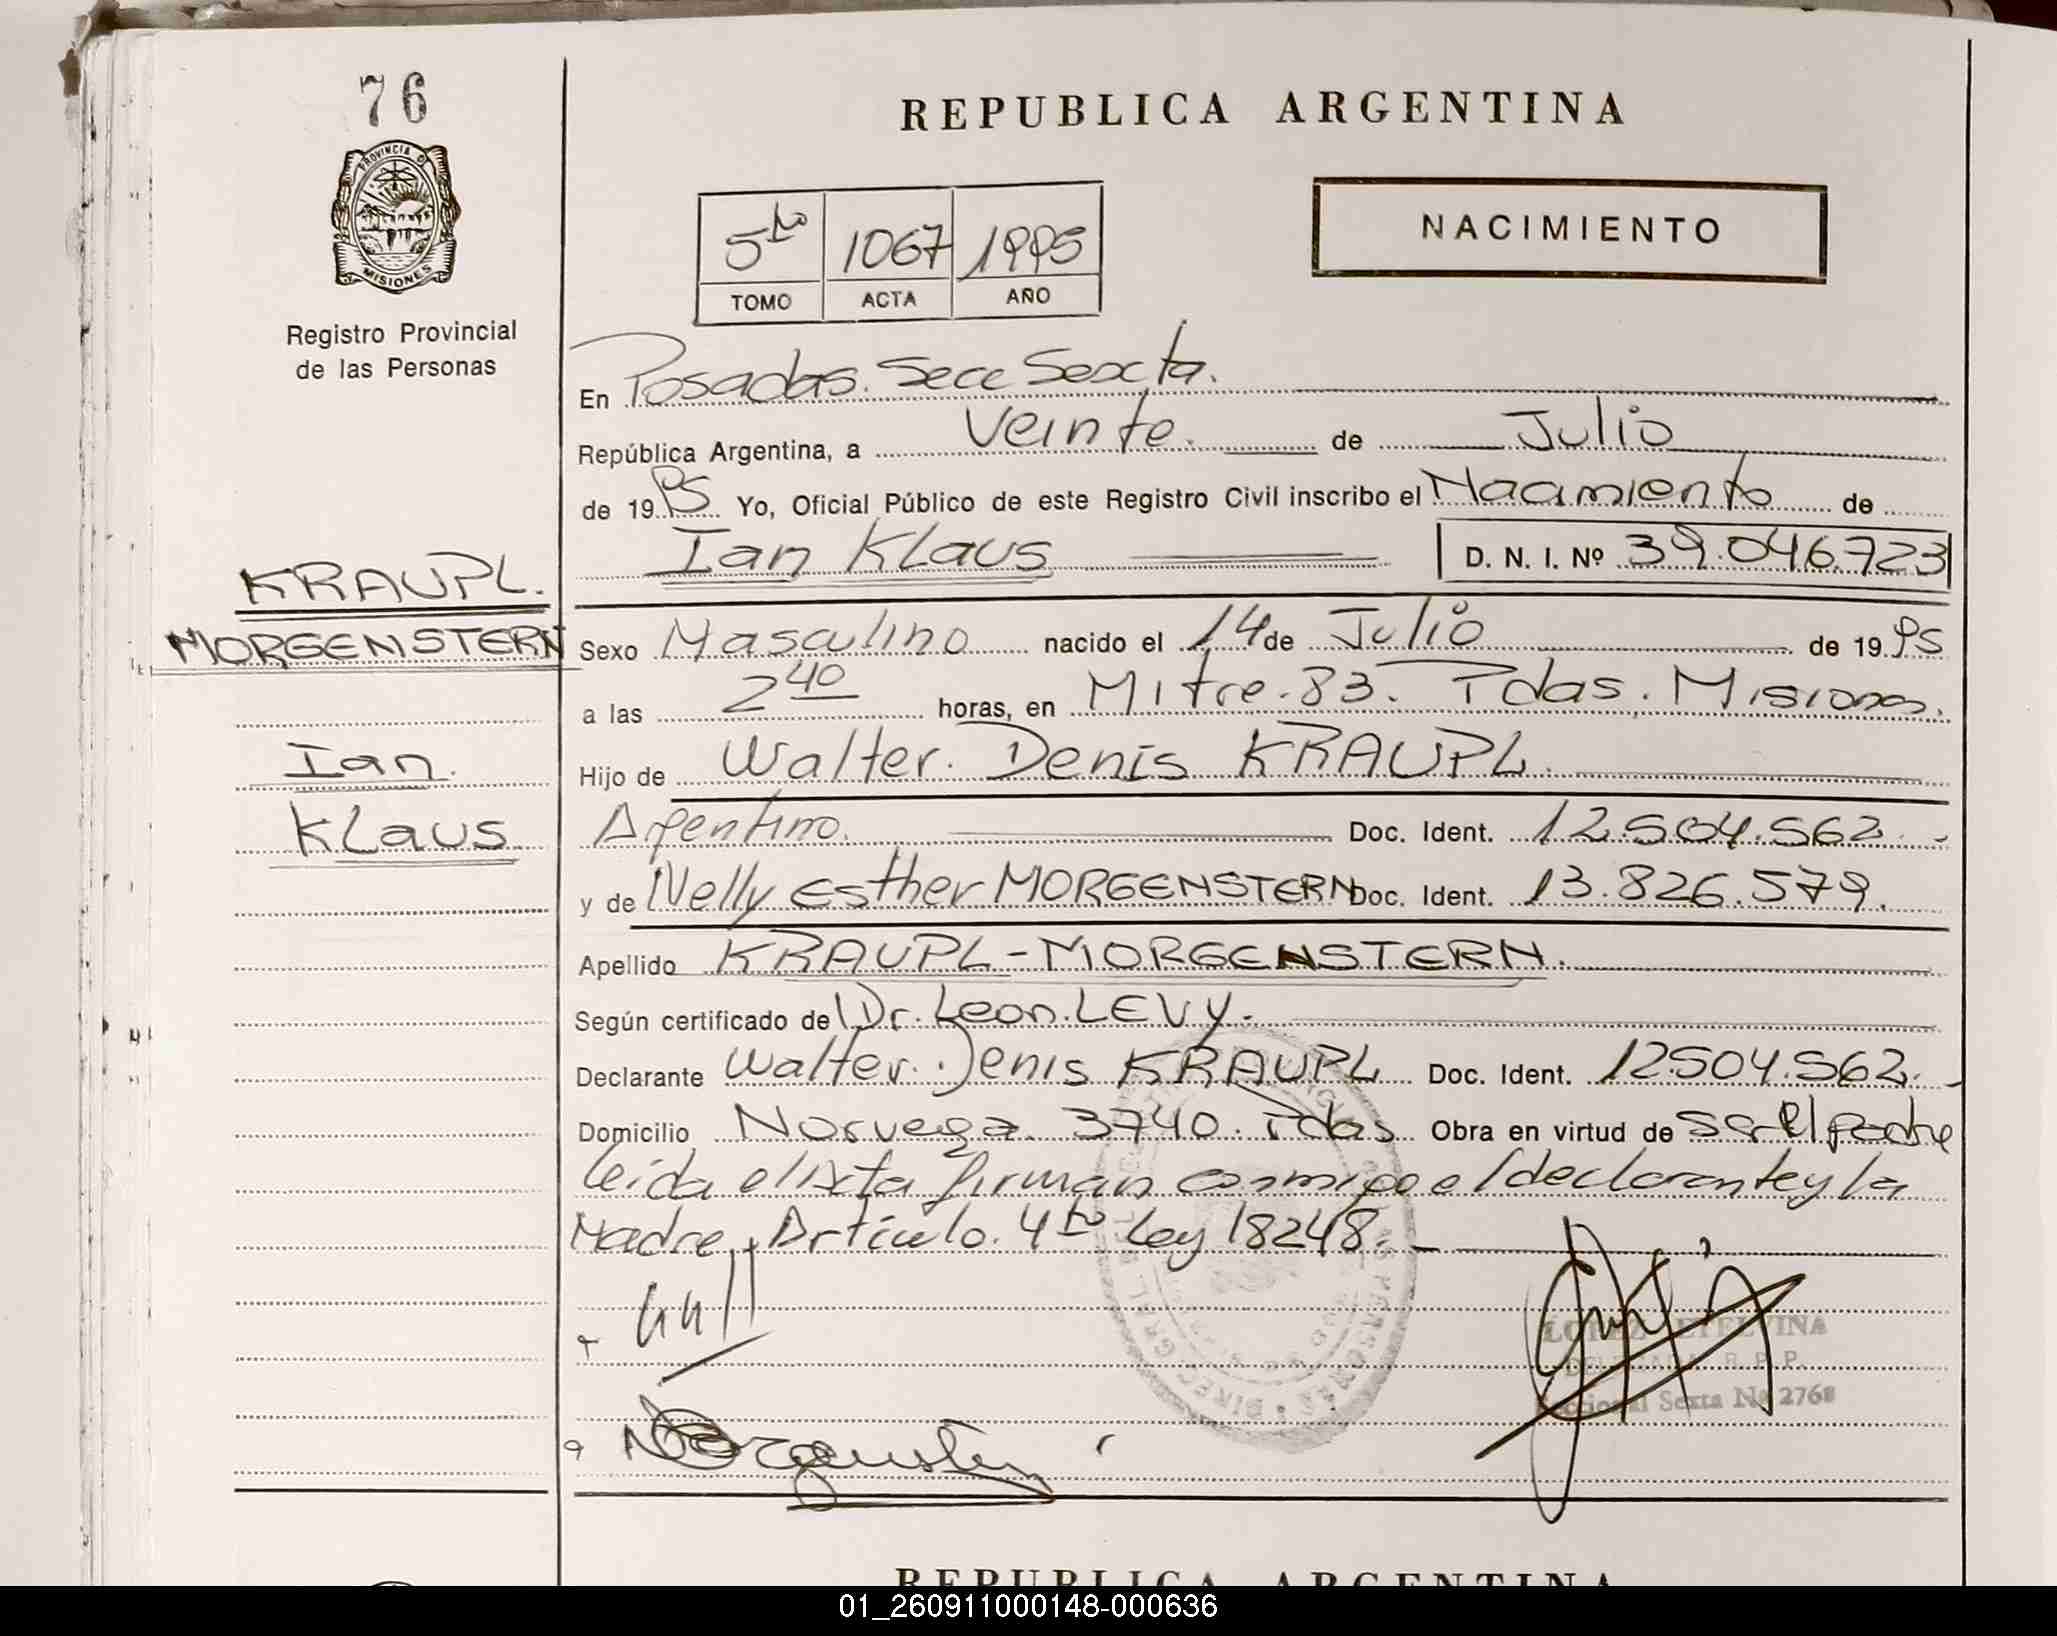 76
PROVINCIA D
MISIONES
Registro Provincial
de las Personas
REPUBLICA ARGENTINA
NACIMIENTO
5to 1067 1995
TOMO ACTA AÑO
En Posadas. Secc Sexcta.
República Argentina, a Veinte. de Julio
de 1995 Yo, Oficial Público de este Registro Civil inscribo el Nacimiento de
Ian Klaus D. N. I. Nº 39.046.723
KRAUPL.
MORGENSTERN
Ian.
Klaus
Sexo Masculino nacido el 14 de Julio de 1995
a las 2 40 horas, en Mitre. 83. Pdas. Misiones.
Hijo de Walter. Denis KRAUPL.
Argentino. Doc. Ident. 12.504.562.-
y de Nelly Esther MORGENSTERN Doc. Ident. 13.826.579.
Apellido KRAUPL-MORGENSTERN.
Según certificado del Dr. Leon. LEVY.
Declarante Walter. Denis KRAUPL Doc. Ident. 12504.562.-
Domicilio Noruega. 3740. Pdas Obra en virtud de Ser El padre
leida el Acta firman conmigo el declarante y la
Madre. Artículo. 4to Ley 18248.-
Morgenstern
LOPEZ ETELVINA
DELEGADA R. P. P.
Seccional Sexta Nº 2768
REPUBLICA ARGENTINA
01_260911000148-000636